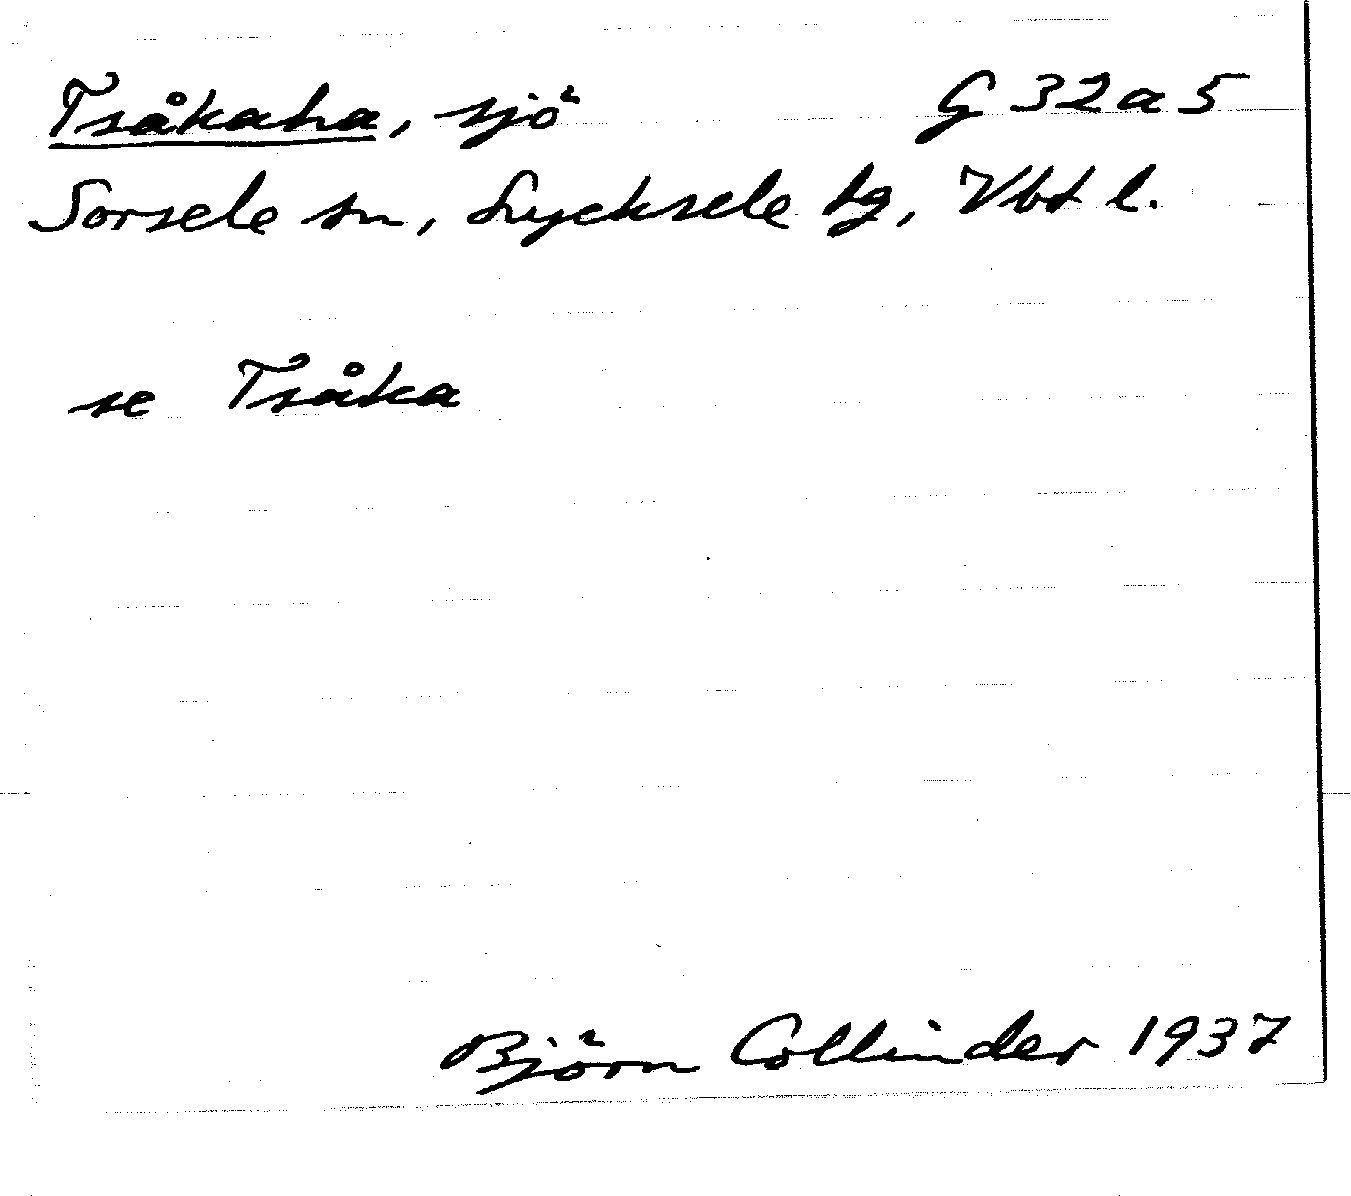 Tsåkaha, sjö G 32 a 5
Sorsele sn, Lycksele lg, Vbt l.
se Tsåka
Björn Collinder 1937